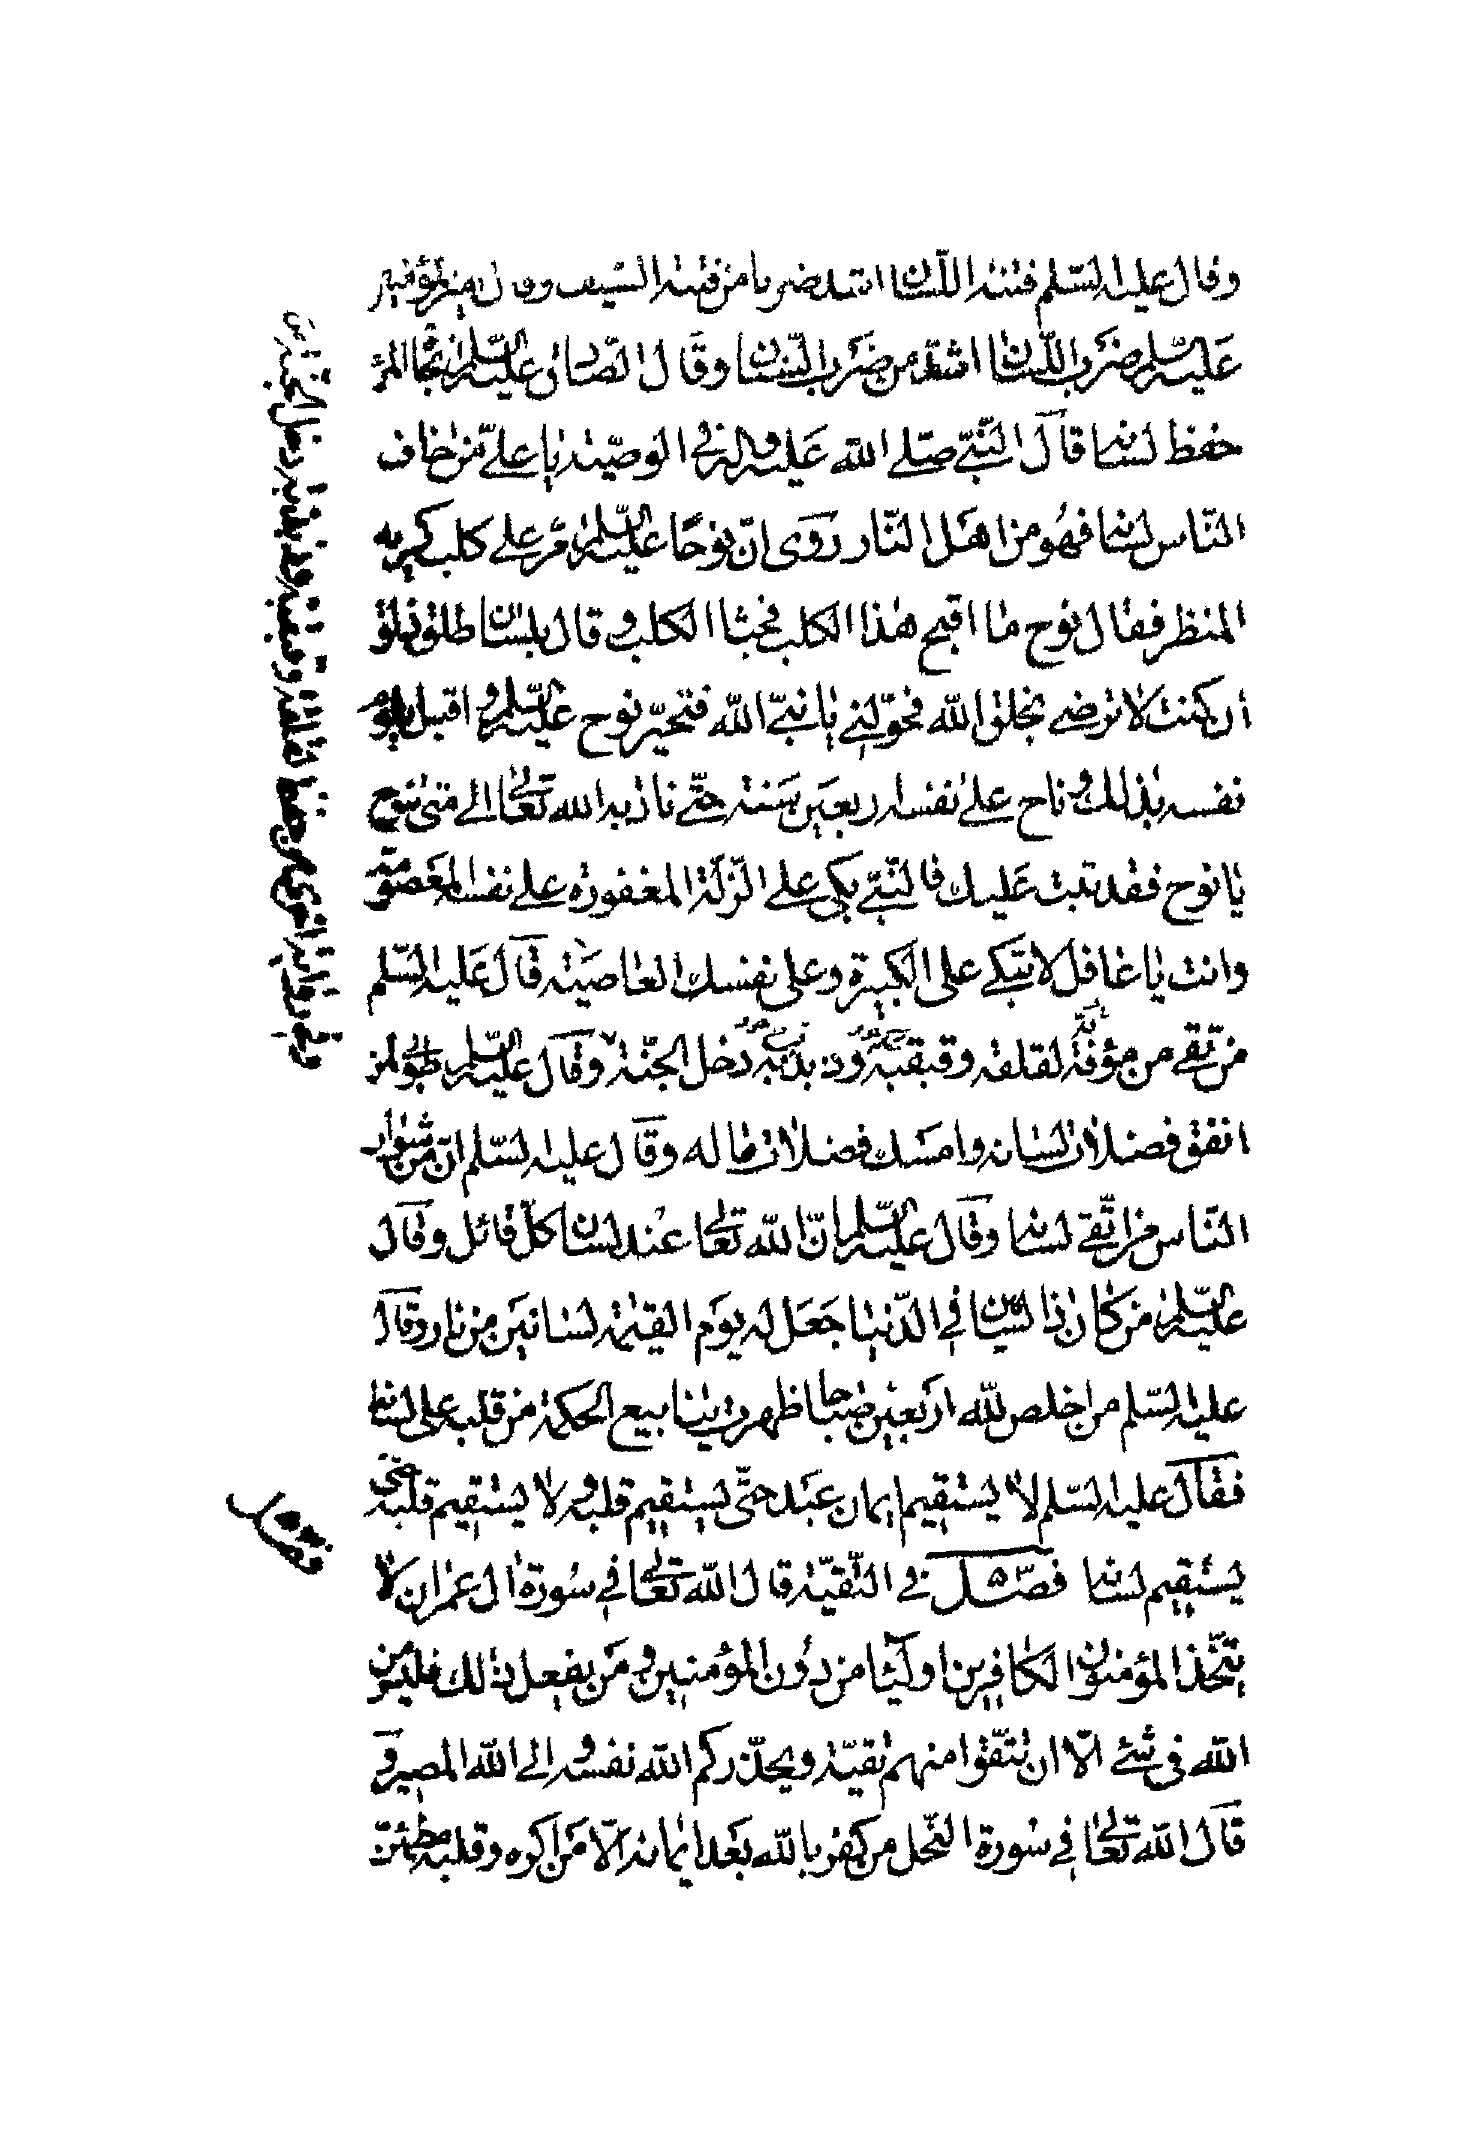 وقال عليه السّلم فتنة اللّسان اشد ضربا من فتنة السّيف وقال امير المؤمنين
عَليه السّلم ضَرب اللّسان اشدّ من ضَرب السّنان وقَال الصّادق عليه السّلم نجاة المؤ
حفظ لسانه قالَ النّبيّ صلّى الله عَليه واله في الوصيّة يا علي من خاف
النّاس لسانه فهُو من اهَل النّار رَوى انّ نوحًا عليه السّلم مّر على كلب كريه
المنظر فقال نوح ما اقبح هذا الكلب فجثا الكلب وقال بلسان طلق ذلق
ان كنت لا ترضى بخلق الله فحوّلني يا نبيّ الله فتحيّر نوح عليه السّلم واقبل يلو
نفسه بذالك وناح على نفسه اربعَين سَنة حتّى ناداه الله تعَالى الى متى تنوح
يا نوح فقد تبت عَليك فالنّبيّ بكى على الزّلّة المغفورة على نفسه المعَصومة
وانت يا غافل لا تبكي على الكبيرة وعلى نفسك العاصيَة قالَ عَليه السّلم
من تّقى من مؤنة لقلقه وقبقبه وذبذبه دخل الجنّة وقَال عليه السّلم طوبى لمن
انفق فضلات لسانه وامسَك فضلات ماله وقَال عليه السّلم انّ من شرار
النّاس من اتّقى لسانه وقَال عليه السّلم انّ الله تعَالى عند لسان كلّ قائل وقَال
عليه السّلم مَن كان ذا لسانين في الدّنيا جَعَل له يوَم القيمة لسانيَن من نار وقَال
عليه السّلم من اخلص للّه ارَبعَين صباحا ظهرت ينابيع الحكمة من قلبه على لسانه
فقَال عليه السّلم لا يستقيم ايمان عبَد حتّى يستقيم قلبه ولا يستقيم قلبه حتى
يستقيم لسانه فصَـــل في التّقيّة قال الله تعَالى في سُورة ال عمران لا
يتّخذ المؤمنون الكافرين اوليَاء من دُون المُؤمنين ومَن يفعل ذلك فليس من
الله في شَيء الّا ان تتّقوا منهم تقيّة ويحذّركم الله نفسه والى الله المصير و
قَال الله تعَالى في سُورة النّحل من كفر بالله بَعَد ايمانه الّا مَن اكره وقلبه مطمئن
وفي رواية اخرى من حفظ لقلقه وقبقبه وذبذبه دخل الجنّة